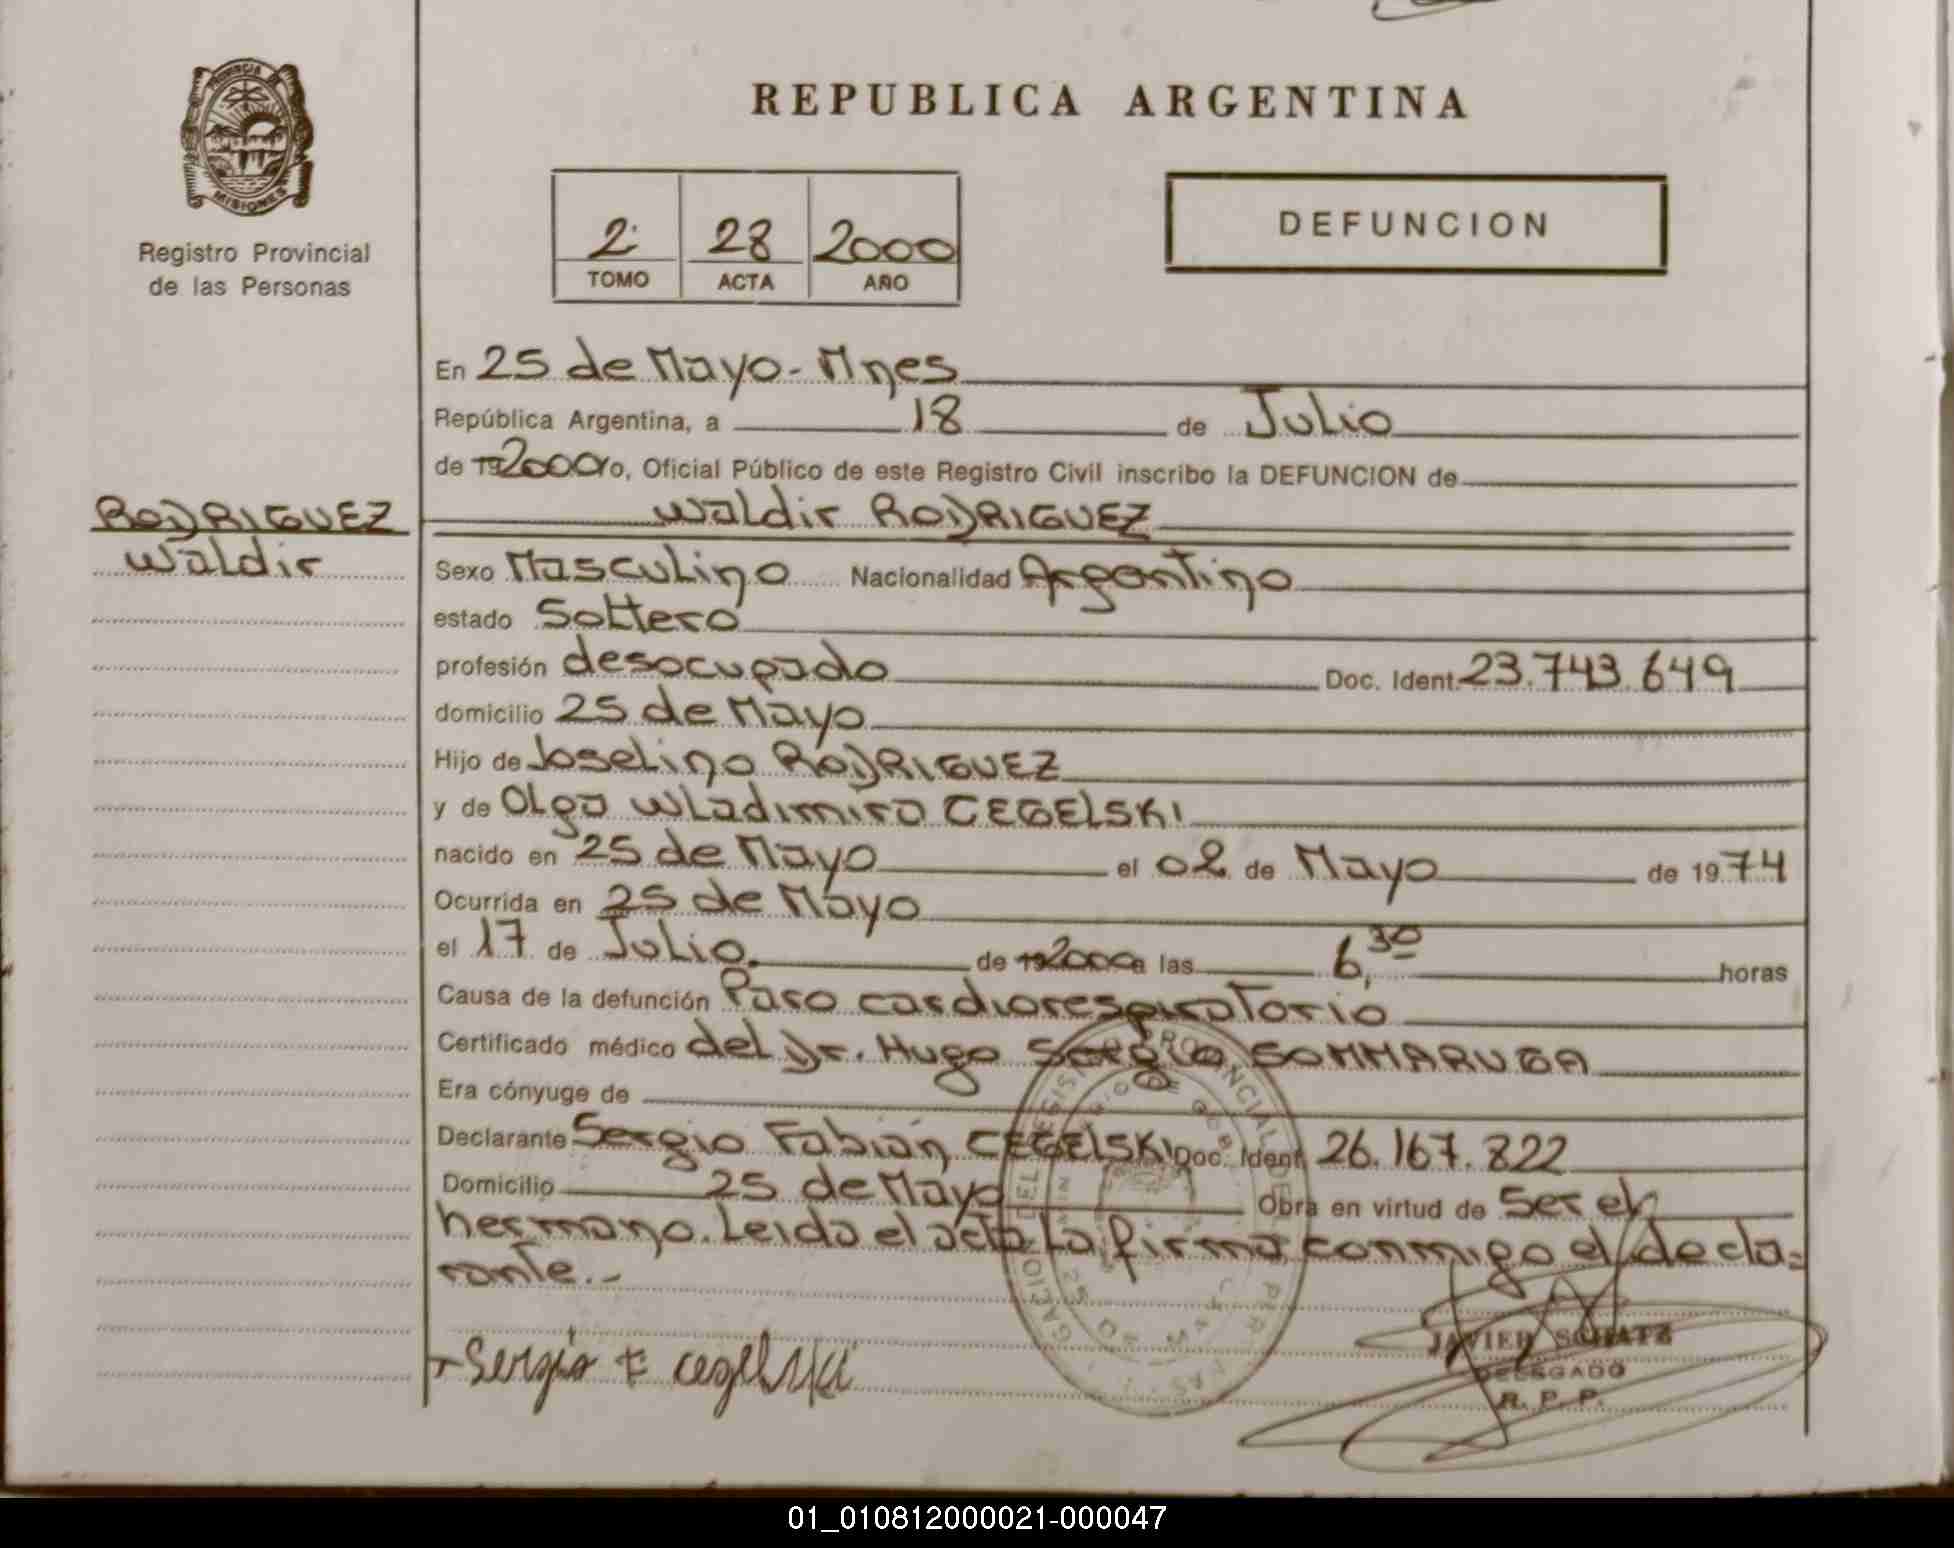 REPUBLICA ARGENTINA
PROVINCIA DE
MISIONES
Registro Provincial
de las Personas
2
28
2000
TOMO
ACTA
AÑO
DEFUNCION
En 25 de Mayo - Mnes
República Argentina, a 18 de Julio
de 192000 Yo, Oficial Público de este Registro Civil inscribo la DEFUNCION de
RODRIGUEZ
Waldir
Waldir RODRIGUEZ
Sexo Masculino Nacionalidad Argentino
estado Soltero
profesión desocupado Doc. Ident. 23.743.649
domicilio 25 de Mayo
Hijo de Joselino RODRIGUEZ
y de Olga Wladimira CEGELSKI
nacido en 25 de Mayo el 02 de Mayo de 1974
Ocurrida en 25 de Mayo
el 17 de Julio de 192000 a las 6,30 horas
Causa de la defunción Paro cardiorespiratorio
Certificado médico del Dr. Hugo Sergio SOMMARUGA
Era cónyuge de
Declarante Sergio Fabián CEGELSKI Doc. Ident. 26.167.822
Domicilio 25 de Mayo Obra en virtud de Ser el
hermano. Leida el acta la firma conmigo el decla=
rante.-
Sergio F cegelski
JAVIER SCHATZ
DELEGADO
R. P. P.
01_010812000021-000047